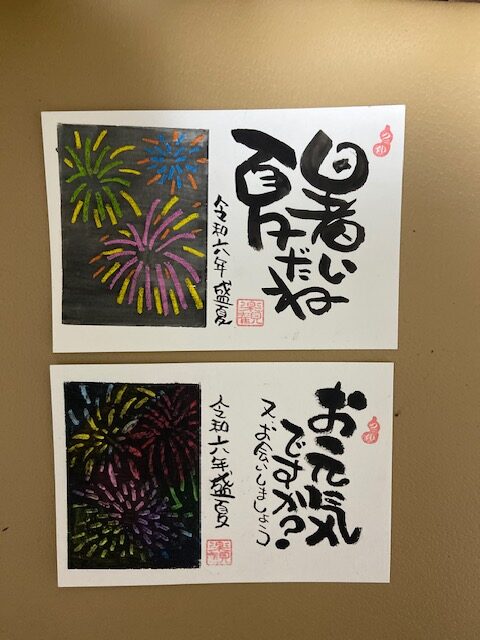 暑い
夏だね
令和六年盛夏
お元気
ですか?
又、お会いしましょう
令和六年盛夏